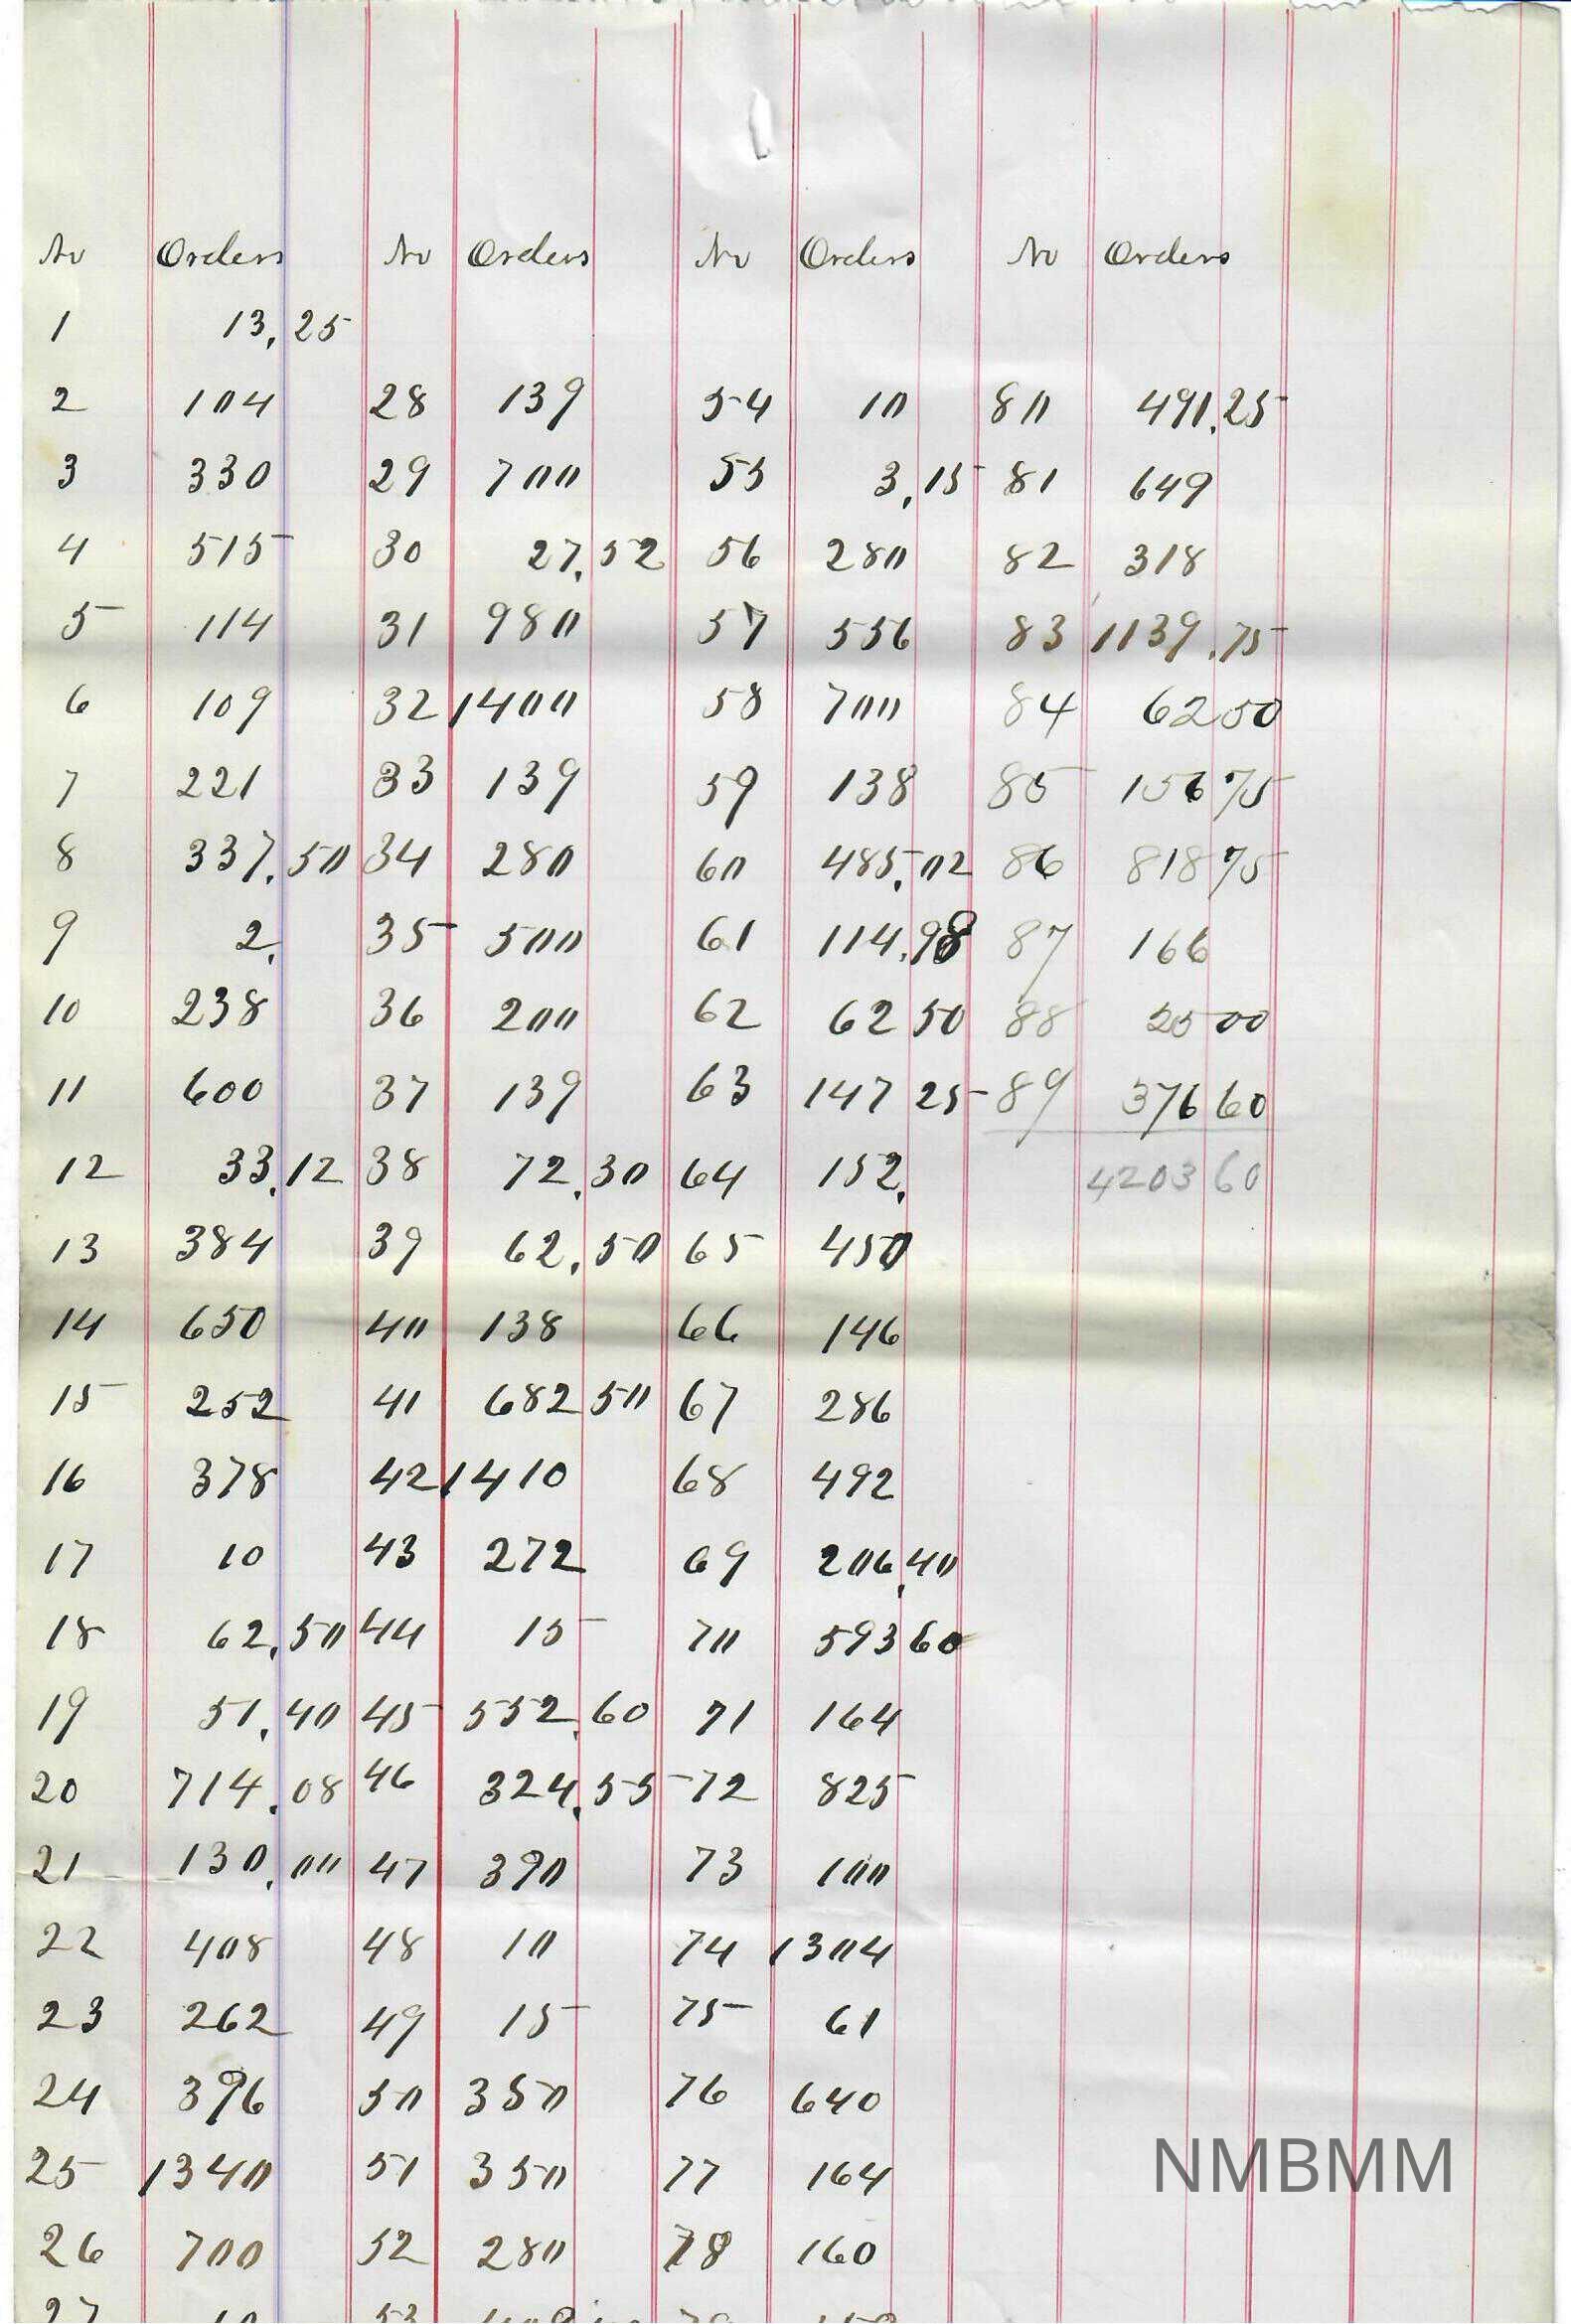 No Orders No Orders No Orders No Orders
1 13.25
2 104 28 139 54 10 80 491.25
3 330 29 700 55 3.15 81 649
4 515 30 27.52 56 280 82 318
5 114 31 980 57 556 83 1139.75
6 109 32 1400 58 700 84 62 50
7 221 33 139 59 138 85 156 75
8 337.50 34 280 60 485.02 86 818 75
9 2. 35 500 61 114.98 87 166
10 238 36 200 62 62 50 88 25 00
11 600 37 139 63 147 25 89 376 60
12 33.12 38 72.30 64 152. 4203 60
13 384 39 62.50 65 450
14 650 40 138 66 146
15 252 41 682 50 67 286
16 378 42 1410 68 492
17 10 43 272 69 206.40
18 62.50 44 15 70 593 60
19 51.40 45 552.60 71 164
20 714.08 46 324.55 72 825
21 130.00 47 390 73 100
22 408 48 10 74 1304
23 262 49 15 75 61
24 396 50 350 76 640
25 1340 51 350 77 164
26 700 52 280 78 160
27 10 53
NMBMM